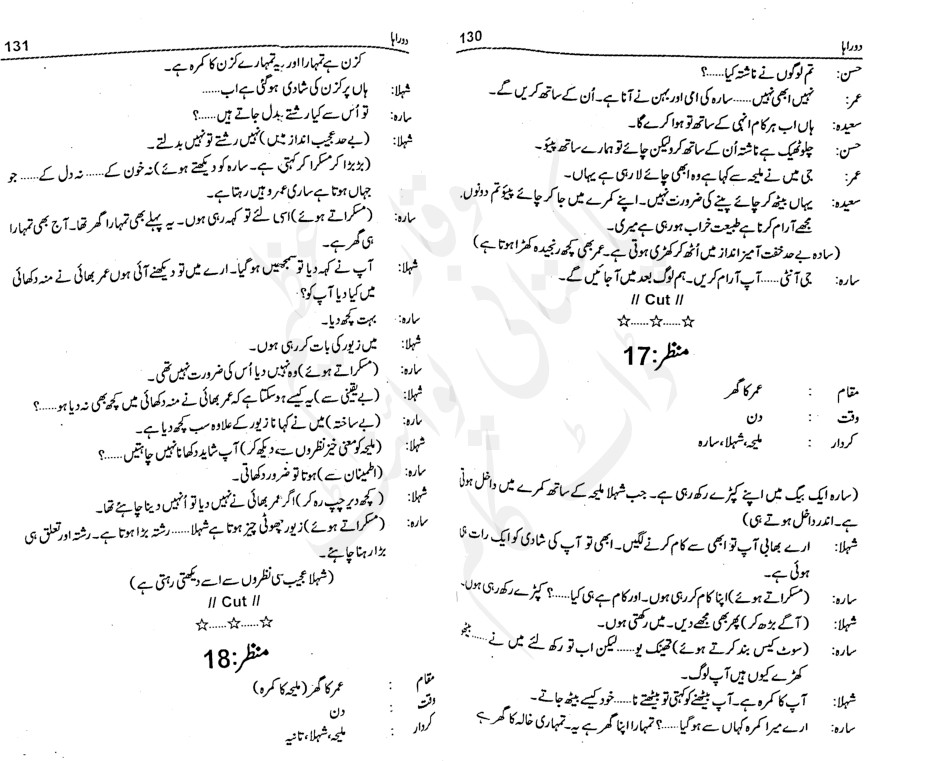 130
دوراہا
حسن: تم لوگوں نے ناشتہ کیا......؟
عمر: نہیں ابھی نہیں...... سارہ کی امی اور بہن نے آنا ہے۔ اُن کے ساتھ کریں گے۔
سعیدہ: ہاں اب ہر کام انہی کے ساتھ تو ہوا کرے گا۔
حسن: چلو ٹھیک ہے ناشتہ اُن کے ساتھ کر و لیکن چائے تو ہمارے ساتھ پیئو۔
عمر: جی میں نے ملیحہ سے کہا ہے وہ ابھی چائے لا رہی ہے یہاں۔
سعیدہ: یہاں بیٹھ کر چائے پینے کی ضرورت نہیں۔ اپنے کمرے میں جا کر چائے پیئو تم دونوں۔
مجھے آرام کرنا ہے طبیعت خراب ہو رہی ہے میری۔
(سارہ بے حد خفت آمیز انداز میں اُٹھ کر کھڑی ہوتی ہے۔ عمر بھی کچھ رنجیدہ کھڑا ہوتا ہے)
سارہ: جی آنٹی...... آپ آرام کریں۔ ہم لوگ بعد میں آجائیں گے۔
// Cut //
☆......☆......☆
منظر:17
مقام : عمر کا گھر
وقت : دن
کردار : ملیحہ، شہلا، سارہ
(سارہ ایک بیگ میں اپنے کپڑے رکھ رہی ہے۔ جب شہلا ملیحہ کے ساتھ کمرے میں داخل ہوتی
ہے۔ اندر داخل ہوتے ہی)
شہلا: ارے بھابی آپ تو ابھی سے کام کرنے لگیں۔ ابھی تو آپ کی شادی کو ایک رات ہی
ہوئی ہے۔
سارہ: (مسکراتے ہوئے) اپنا کام کر رہی ہوں۔ اور کام ہے ہی کیا......؟ کپڑے رکھ رہی ہوں۔
شہلا: (آگے بڑھ کر) پھر بھی مجھے دیں۔ میں رکھتی ہوں۔
سارہ: (سوٹ کیس بند کرتے ہوئے) تھینک یو...... لیکن اب تو رکھ لئے میں نے...... بیٹھو
کھڑے کیوں ہیں آپ لوگ۔
شہلا: آپ کا کمرہ ہے۔ آپ بیٹھنے کو کہتی تو بیٹھتے نا...... خود کیسے بیٹھ جاتے۔
سارہ: ارے میرا کمرہ کہاں سے ہو گیا......؟ تمہارا اپنا گھر ہے یہ۔ تمہاری خالہ کا گھر ہے
131
دوراہا
کزن ہے تمہارا اور یہ تمہارے کزن کا کمرہ ہے۔
شہلا: ہاں پر کزن کی شادی ہو گئی ہے اب......
سارہ: تو اُس سے کیا رشتے بدل جاتے ہیں......؟
شہلا: (بے حد عجیب انداز میں) نہیں رشتے تو نہیں بدلتے
(بڑبڑا کر مسکرا کر کہتی ہے۔ سارہ کو دیکھتے ہوئے) نہ خون کے...... نہ دل کے...... جو
جہاں ہوتا ہے ساری عمر وہیں رہتا ہے۔
سارہ: (مسکراتے ہوئے) اسی لئے تو کہہ رہی ہوں۔ یہ پہلے بھی تمہارا گھر تھا۔ آج بھی تمہارا
ہی گھر ہے۔
شہلا: آپ نے کہہ دیا تو سمجھیں ہو گیا۔ ارے میں تو دیکھنے آئی ہوں عمر بھائی نے منہ دکھائی
میں کیا دیا آپ کو؟
سارہ: بہت کچھ دیا۔
شہلا: میں زیور کی بات کر رہی ہوں۔
سارہ: (مسکراتے ہوئے) وہ نہیں دیا اُس کی ضرورت نہیں تھی۔
شہلا: (بے یقینی سے) یہ کیسے ہو سکتا ہے کہ عمر بھائی نے منہ دکھائی میں کچھ بھی نہ دیا ہو......؟
سارہ: (بے ساختہ) میں نے کہا نا زیور کے علاوہ سب کچھ دیا ہے۔
شہلا: (ملیحہ کو معنی خیز نظروں سے دیکھ کر) آپ شاید دکھانا نہیں چاہتیں......؟
سارہ: (اطمینان سے) ہوتا تو ضرور دکھاتی۔
شہلا: (کچھ دیر چپ رہ کر) اگر عمر بھائی نے نہیں دیا تو اُنہیں دینا چاہئے تھا۔
سارہ: (مسکراتے ہوئے) زیور چھوٹی چیز ہوتا ہے شہلا...... رشتہ بڑا ہوتا ہے۔ رشتہ اور تعلق ہی
بڑا رہنا چاہئے۔
(شہلا عجیب سی نظروں سے اسے دیکھتی رہتی ہے)
// Cut //
☆......☆......☆
منظر:18
مقام : عمر کا گھر (ملیحہ کا کمرہ)
وقت : دن
کردار : ملیحہ، شہلا، تانیہ